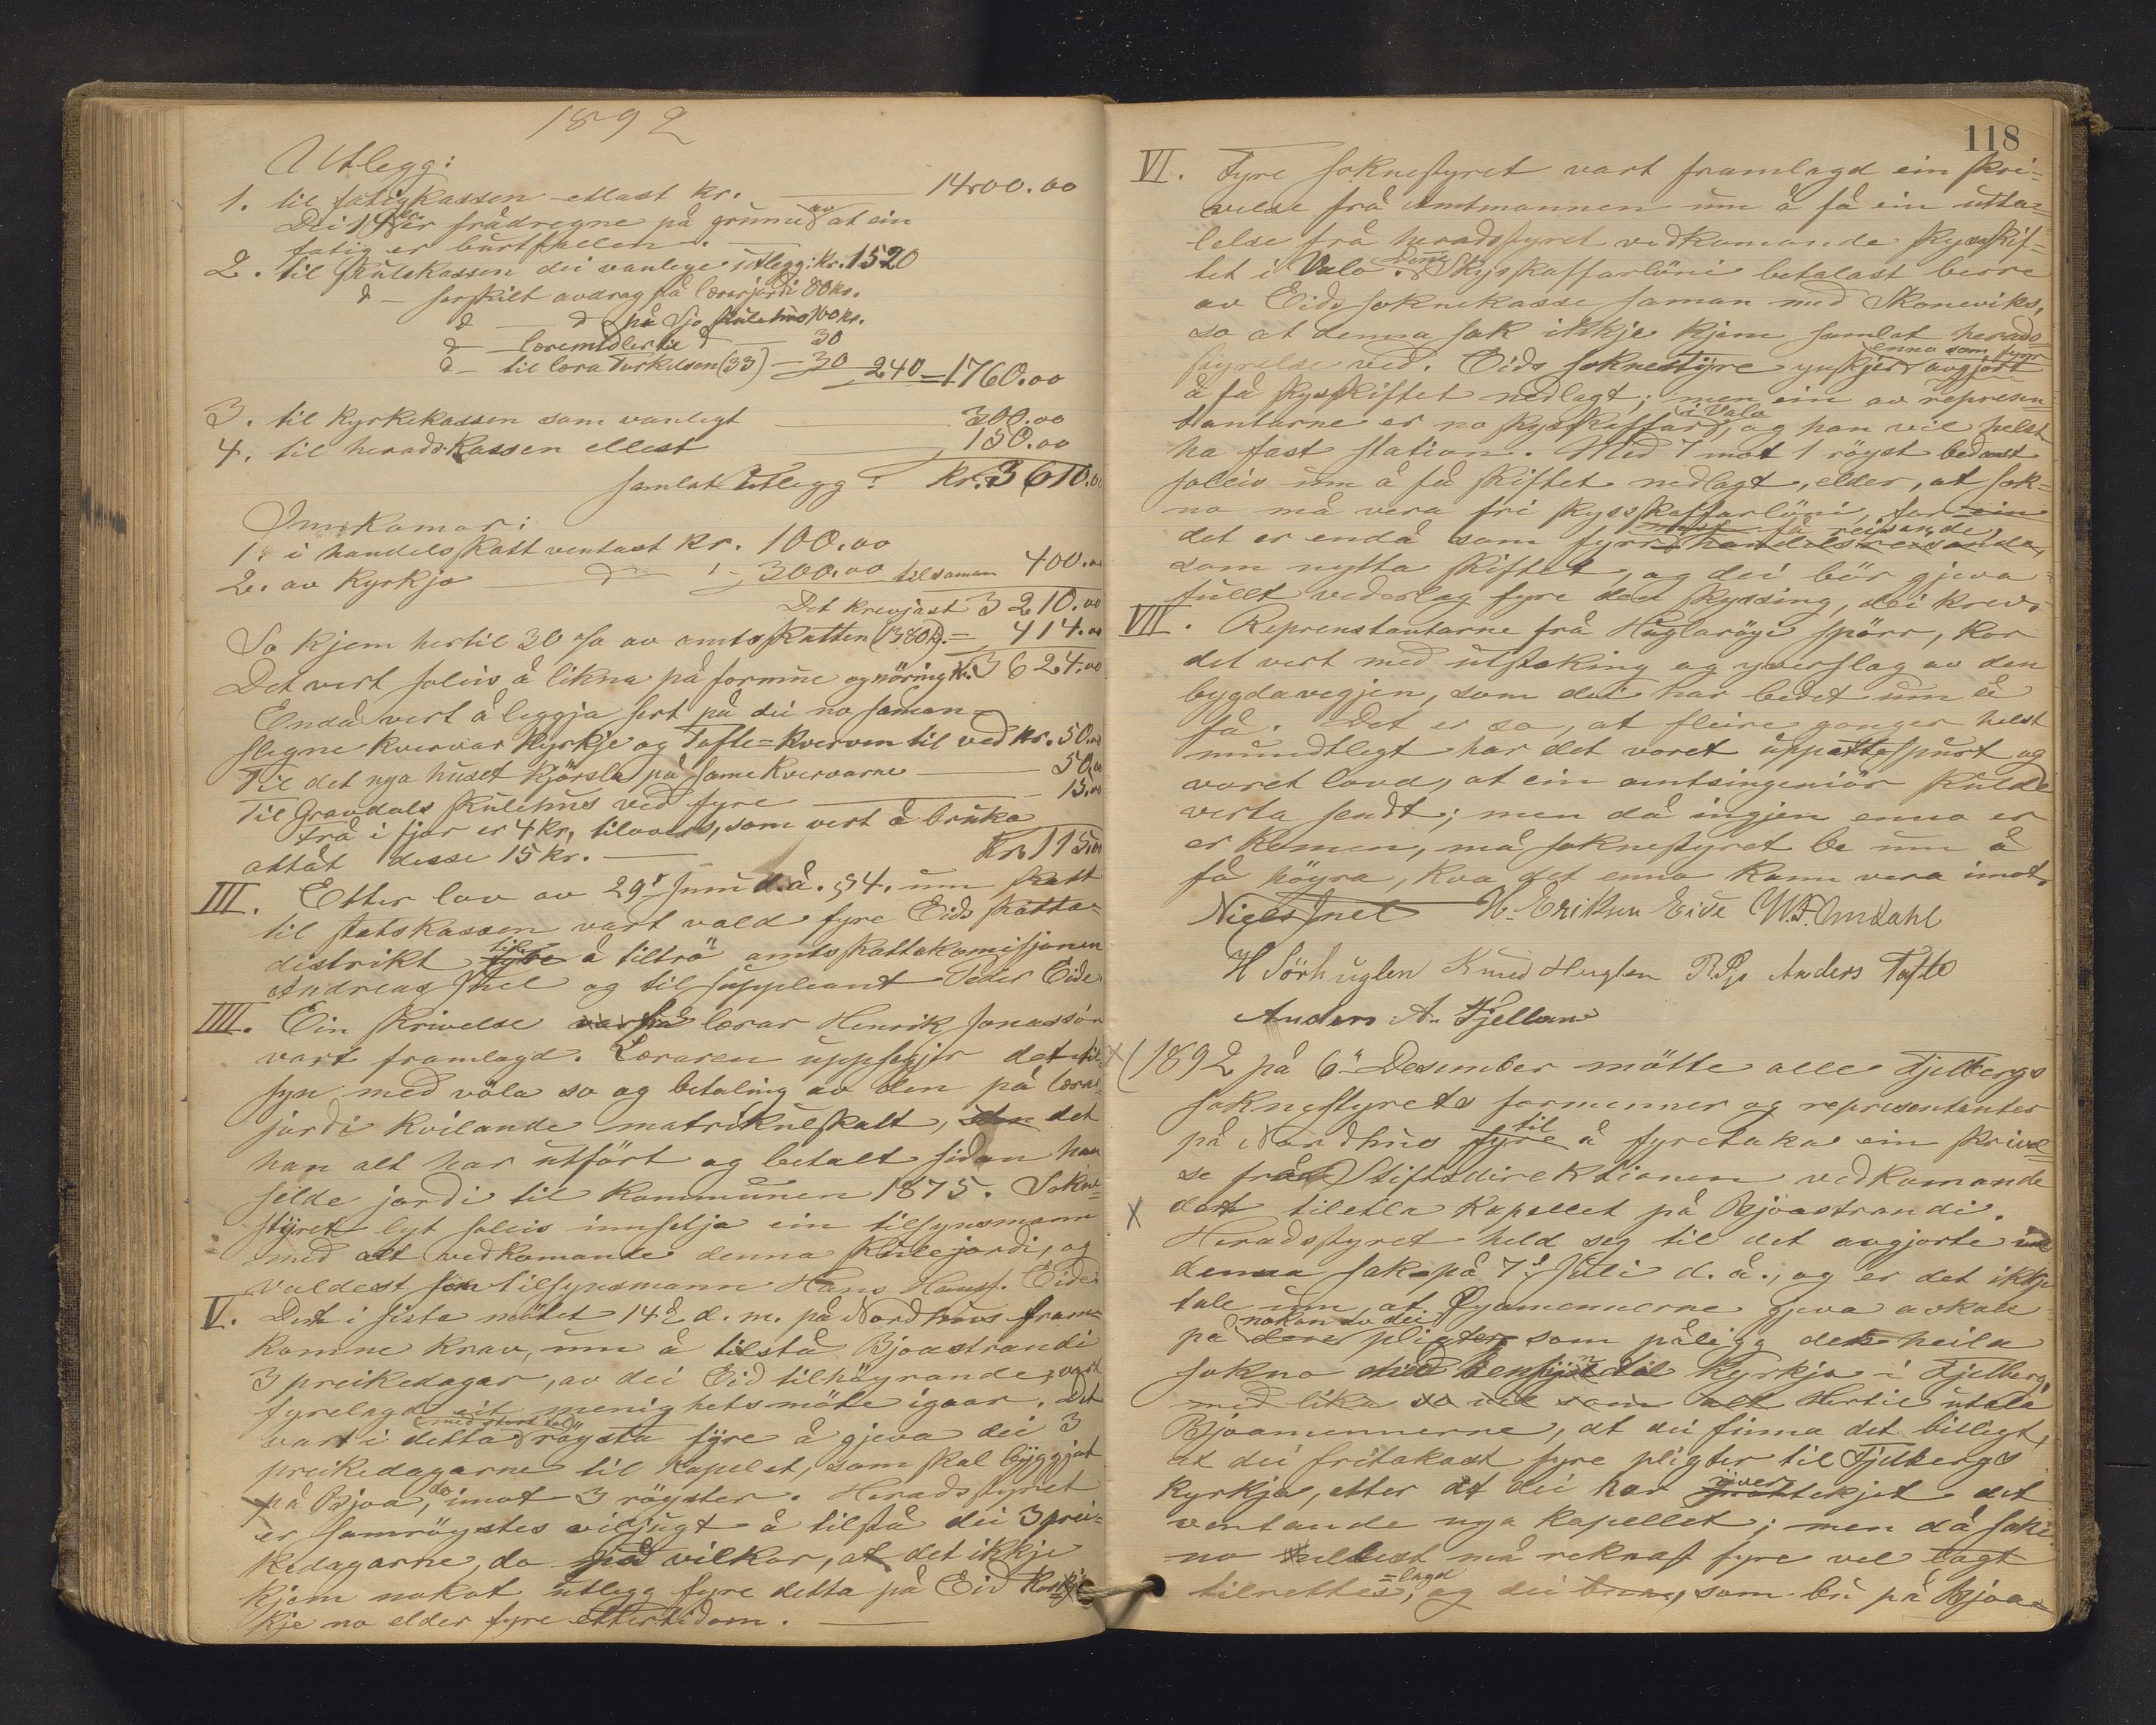 1892
Utlegg:
1. til fatigkassen ellast kr. 1400.00
Dei 14 kr. er frådregne på grunn av at ein
fatig er burtfallen.
2. til skulekassen dei vanlege utlegg: kr. 1520
d - serskilt avdrag på lærarjordi 80 kr.
d - d på Sjo skulehus 100 kr.
d - læremidler til d 30
d - til læra Turkelsen (33) - 30 - 240 = 1760.00
3. til kyrkjekassen som vanlegt 300.00
4. til heradskassen ellest 150.00
samlat Utlegg: kr. 3610.00
Innkomor:
1. i handelsskatt ventast kr. 100.00
2. av kyrkja d - 300.00 tilsaman 400.00
Det krevjast 3210.00
So kjem hertil 30 % av amtsskatten (1380 kr.) = 414.00
Det vert soleis å likna på formue og näring kr. 3624.00
Endå vert å leggja sert på dei no saman-
slegne kvervar Kyrkje og Tofte-kverven til ved kr. 50.00
Til det nya huset kjörsla på same kvervarne 50.00
Til Gravdals skulehus ved fyre 15.00
Frå i fjor er 4 kr. tilovers, som vert å bruka
attåt desse 15 kr. Kr. 115.00
III. Etter lov av 29' Juni d.å. § 4. um skatt
til statskassen vart vald fyre Eids skatta-
distrikt fyre til å tiltrö amtsskattekomisjonen
Andreas Snel og til suppleant Peder Eide
IIII. Ein skrivelse var frå lærar Henrik Jonassön
vart framlagd. Læraren uppsegjer det til-
syn med völa so og betaling av den på lærar-
jordi kvilande matrikulskatt, det
han alt har utfört og betalt sidan han
selde jordi til kommunen 1875. Sokne-
styret lyt soleis innsetja ein tilsynsmann
med alt vedkomande denna skulejordi, og
valdest som tilsynsmann Hans Hansf. Eide
V. Det i sista mötet 14de d. m. på Nordhus fram-
komne krav, um å tilstå Bjoastrandi
3 preikedagar, av dei Eid tilhöyrande, vart
fyrelagd eit menighetsmöte igaar. Det
vart i detta med stort tal röysta fyre å gjeva dei 3
preikedagarne til kapelet, som skal byggjast
på Bjoa, do imot 3 röyster. Heradsstyret
er samröystes viljugt å tilstå dei 3 prei-
kedagarne, do på vilkor, at det ikkje
kjem nokot utlegg fyre detta på Eid kor
kje no elder fyre ettertidom.
118
VI. Fyre soknestyret vart framlagd ein skri-
velse frå Amtmannen um å få ein utta-
lelse frå heradsstyret vedkomande skysskif-
tet i Valo. Denne Skysskaffarlöni betalast berre
av Eids soknekasse saman med Skoneviks,
so at denna sak ikkje kjem samlat herads-
styrelse ved. Eids soknestyre ynskjer enno som fyrr avgjort
å få skysskiftet nedlagt; men ein av represen-
tantarne er no skysskaffar i Valo, og han vil helst
ha fast station. Med 7 mot 1 röyst bedest
soleis um å få skiftet nedlagt, elder, at sok-
na må vera fri skysskaffarlöni, for ein
det er endå som fyrr mest få reisande handelsreisande,
som nytta skiftet, og dei bör gjeva
fullt vederlag fyre den skyssing, dei krev.
VII. Reprenstantarne frå Huglaröyi spörr, kor
det vert med utstaking og yverslag av den
bygdavegjen, som dei har bedet um å
få. Det er so, at fleire ganger helst
mundtlegt har det voret uppattaspurt og
voret lovd, at ein amtsingeniör skulde
verta sendt; men då ingjen enno er
er komen, må soknestyret be um å
få höyra, kva det enno kann vera imot.
Niels Snel H. Eriksen Eide W. F. Undahl
H Sörhuglen Knud Huglen R. P. Anders Tofte
Anders A. Fjelland
(1892 på 6te Desember mötte alle Fjelbergs
soknestyrets formenner og representanter
på Nordhus fyre til å fyretaka ein skrivel-
se frå Stiftsdirektionen vedkomande
det tiletla kapellet på Bjoastrandi.
Heradsstyret held seg til det avgjorte i
denna sak på 7de Juli d. å., og er det ikkje
tale um, at Öyamennerne gjeva avkall
på nokon av dei dere pligter som påligg den heila
sokna med hensyn til Kyrkja i Fjelberg,
med lika so vel som alt Hertil utala
Bjoamennerne, at dei finna det billigt,
at dei fritakast fyre pligter til Fjelbergs
kyrkja, etter at dei har yver tekjet det
ventande nya kapellet; men då saki
no ellest må reknast fyre vel lagt
tilrettes-lagd, og dei bruu, som bu på Bjoa-